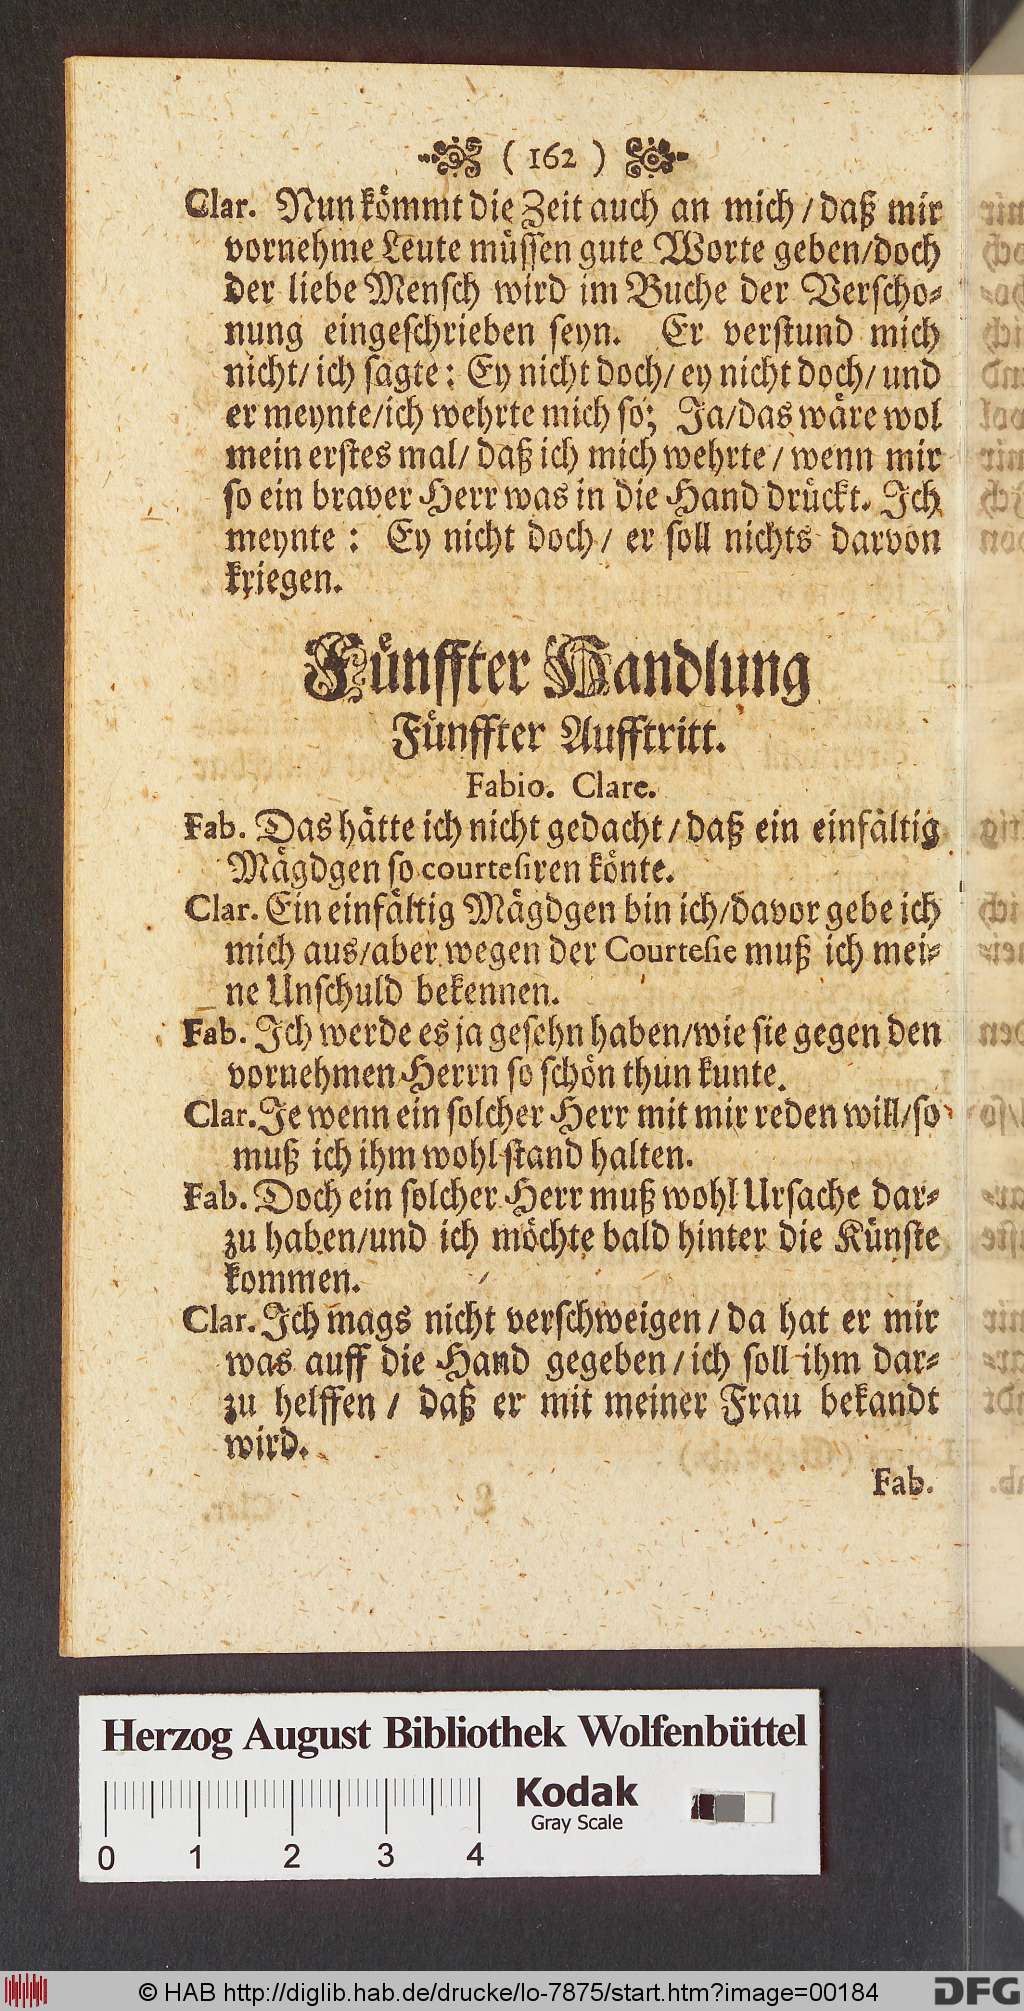 ( 162 )
Clar. Nun kömmt die Zeit auch an mich / daß mir
vornehme Leute müssen gute Worte geben/doch
der liebe Mensch wird im Buche der Verscho-
nung eingeschrieben seyn. Er verstund mich
nicht/ ich sagte: Ey nicht doch/ ey nicht doch/ und
er meynte/ich wehrte mich so; Ja/das wäre wol
mein erstes mal/ daß ich mich wehrte / wenn mir
so ein braver Herr was in die Hand drückt. Ich
meynte : Ey nicht doch/ er soll nichts darvon
kriegen.
Fünffter Handlung
Fünffter Aufftritt.
Fabio. Clare.
Fab. Das hätte ich nicht gedacht / daß ein einfältig
Mägdgen so courtesiren könte.
Clar. Ein einfältig Mägdgen bin ich/davor gebe ich
mich aus/aber wegen der Courtesie muß ich mei-
ne Unschuld bekennen.
Fab. Ich werde es ja gesehn haben/wie sie gegen den
vornehmen Herrn so schön thun kunte.
Clar. Je wenn ein solcher Herr mit mir reden will/so
muß ich ihm wohl stand halten.
Fab. Doch ein solcher Herr muß wohl Ursache dar-
zu haben/und ich möchte bald hinter die Künste
kommen.
Clar. Ich mags nicht verschweigen / da hat er mir
was auff die Hand gegeben / ich soll ihm dar-
zu helffen / daß er mit meiner Frau bekandt
wird.
Fab.
Herzog August Bibliothek Wolfenbüttel
Kodak
Gray Scale
0 1 2 3 4
© HAB http://diglib.hab.de/drucke/lo-7875/start.htm?image=00184
DFG